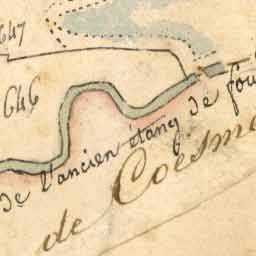 647
646
de l'ancien étang de
de Coësm